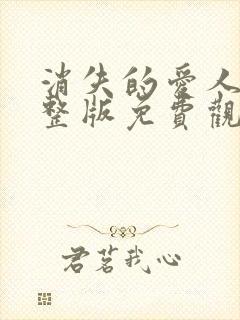 消失的愛人
整版免費觀
君茗我心